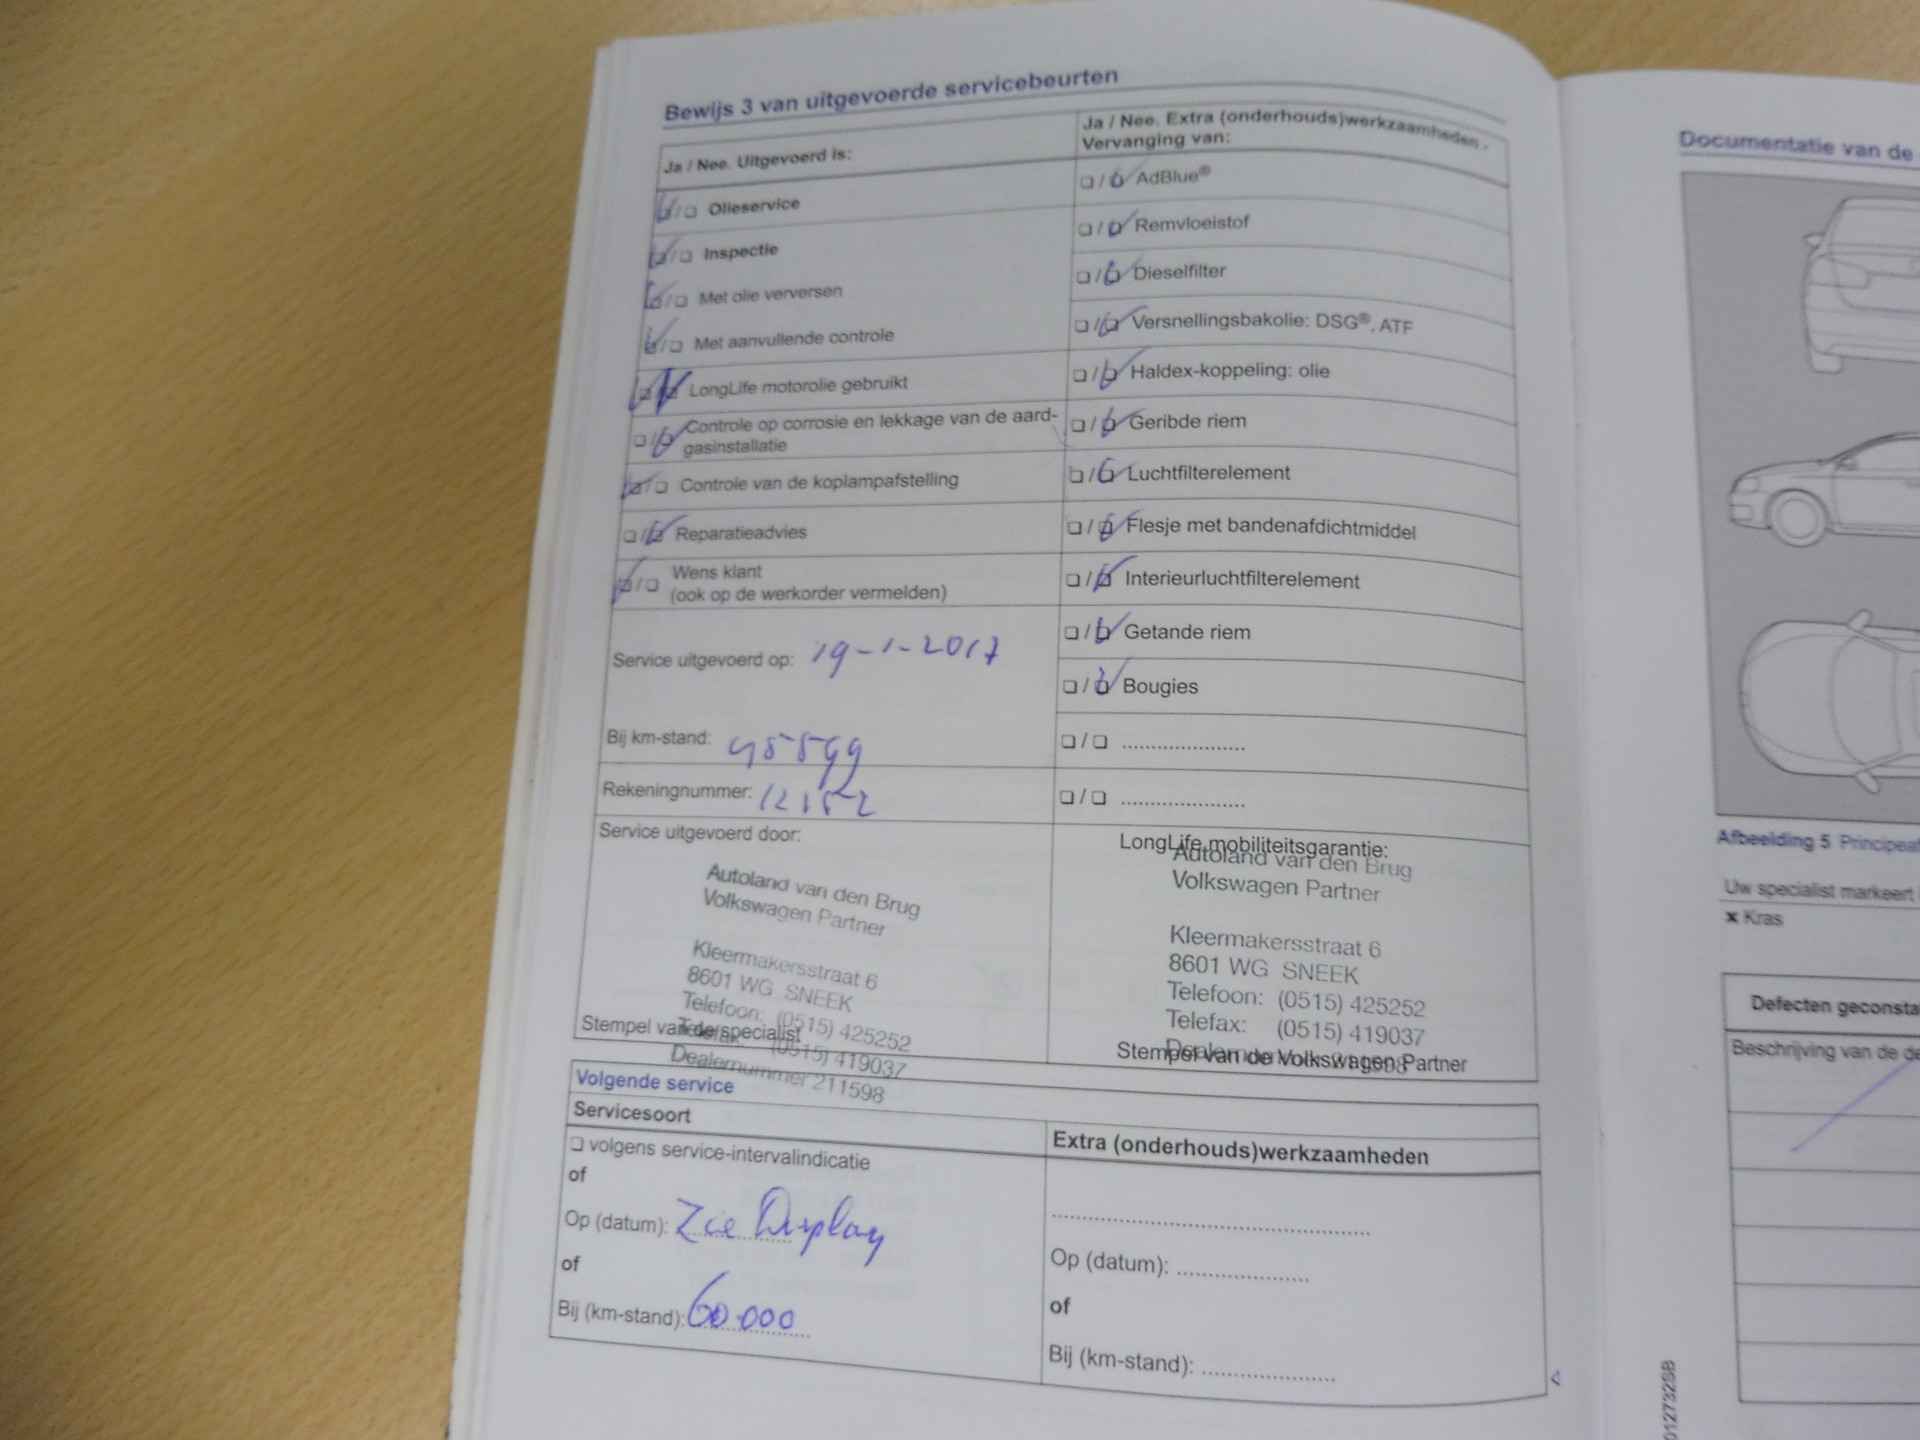 Bewijs 3 van uitgevoerde servicebeurten
Ja / Nee. Uitgevoerd is:
Olieservice
Inspectie
Met olie verversen
Met aanvullende controle
LongLife motorolie gebruikt
Controle op corrosie en lekkage van de aard-
gasinstallatie
Controle van de koplampafstelling
Reparatieadvies
Wens klant
(ook op de werkorder vermelden)
Service uitgevoerd op: 19-1-2017
Bij km-stand:
Rekeningnummer: 12152
Ja / Nee. Extra (onderhouds)werkzaamheden,
Vervanging van:
AdBlue®
Remvloeistof
Dieselfilter
Versnellingsbakolie: DSG®, ATF
Haldex-koppeling: olie
Geribde riem
Luchtfilterelement
Flesje met bandenafdichtmiddel
Interieurluchtfilterelement
Getande riem
Bougies
Service uitgevoerd door:
Autoland van den Brug
Volkswagen Partner
Kleermakersstraat 6
8601 WG SNEEK
Telefoon: (0515) 425252
Stempel van de specialist
Telefax: (0515) 419037
Dealernummer 211598
LongLife mobiliteitsgarantie:
Autoland van den Brug
Volkswagen Partner
Kleermakersstraat 6
8601 WG SNEEK
Telefoon: (0515) 425252
Telefax: (0515) 419037
Stempel van de Volkswagen Partner
Volgende service
Servicesoort
volgens service-intervalindicatie
of
Op (datum): Zie Display
of
Bij (km-stand): 60.000
Extra (onderhouds)werkzaamheden
Op (datum):
of
Bij (km-stand):
Documentatie van de
Afbeelding 5
Uw specialist markeert
x Kras
Defecten
Beschrijving van de
012732SB